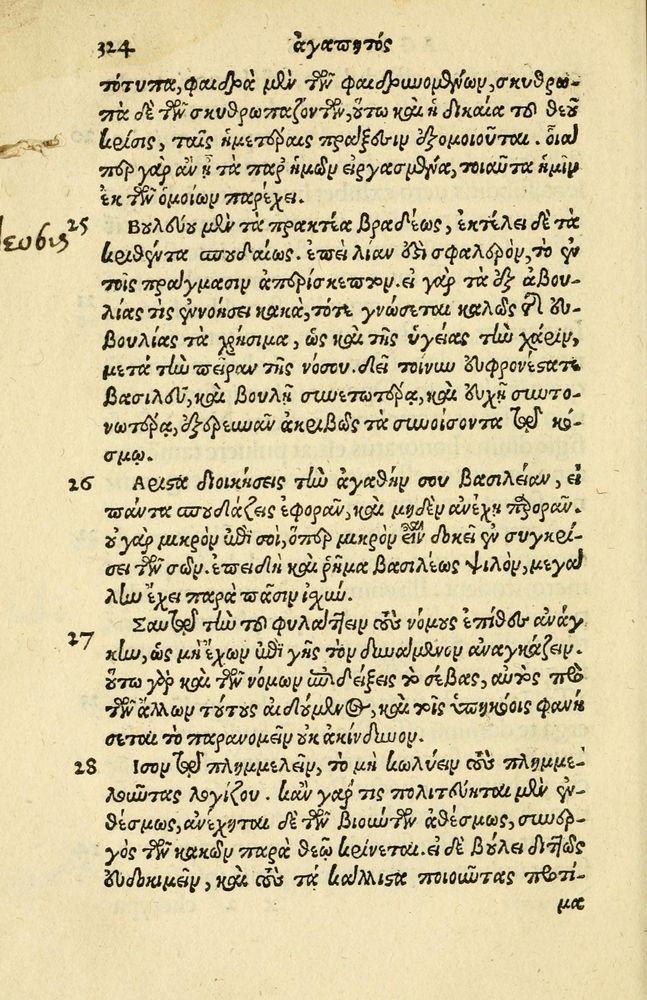 324 ἀγαπητός
τότυπα, φαιδρὰ μὲν τῶν φαιδρυνομένων, σκυθρω-
πὰ δὲ τῶν σκυθρωπαζόντων, οὕτω καὶ ἡ δικαία τοῦ θεοῦ
κρίσις, ταῖς ἡμετέραις πράξεσιν ἐξομοιοῦται. οἷα
περ γὰρ ἂν ᾖ τὰ παρ' ἡμῶν εἰργασμένα, τοιαῦτα ἡμῖν
ἐκ τῶν ὁμοίων παρέχει.
25 Βουλεύου μὲν τὰ πρακτέα βραδέως, ἐκτέλει δὲ τὰ
κριθέντα σπουδαίως. ἐπεὶ λίαν ἐστὶ σφαλερὸν, τὸ ἐν
τοῖς πράγμασιν ἀπερίσκεπτον. εἰ γὰρ τὰ ἐξ ἀβου-
λίας τὶς ἐννοήσει κακὰ, τότε γνώσεται καλῶς τῆς εὐ-
βουλίας τὰ χρήσιμα, ὡς καὶ τῆς ὑγείας τὴν χάριν,
μετὰ τὴν πεῖραν τῆς νόσου. δεῖ τοίνυν εὐφρονέστατε
βασιλεῦ, καὶ βουλῇ συνετωτέρᾳ, καὶ εὐχῇ συντο-
νωτέρᾳ, ἐξερευνᾶν ἀκριβῶς τὰ συνοίσοντα τῷ κό-
σμῳ.
26 Αριστα διοικήσεις τὴν ἀγαθήν σου βασιλείαν, εἰ
πάντα σπουδάζεις ἐφορᾶν, καὶ μηδὲν ἀνέχῃ παρορᾶν.
οὐ γὰρ μικρὸν ἐπὶ σοὶ, ὅπερ μικρὸν εἶναι δοκεῖ ἐν συγκρί-
σει τῶν σῶν. ἐπειδὴ καὶ ῥῆμα βασιλέως ψιλὸν, μεγάλ
λην ἔχει παρὰ πᾶσιν ἰχύν.
27 Σαυτῷ τὴν τοῦ φυλάττειν τοὺς νόμους ἐπίθες ἀνάγ
κην, ὡς μὴ ἔχων ἐπὶ γῆς τὸν δυνάμενον ἀναγκάζειν.
οὕτω γὰρ καὶ τῶν νόμων ἐπιδείξεις τὸ σέβας, αὐτὸς πρὸ
τῶν ἄλλων τούτους αἰδούμενος, καὶ τοῖς ὑπηκόοις φανή
σεται τὸ παρανομεῖν οὐκ ἀκίνδυνον.
28 Ισον τῷ πλημμελεῖν, τὸ μὴ κωλύειν τοὺς πλημμε-
λοῦντας λογίζου. κἂν γάρ τις πολιτεύηται μὲν ἐν-
θέσμως, ἀνέχηται δὲ τῶν βιούντων ἀθέσμως, συνερ-
γὸς τῶν κακῶν παρὰ θεῷ κρίνεται. εἰ δὲ βούλει διττῶς
εὐδοκιμεῖν, καὶ τοὺς τὰ κάλλιστα ποιοῦντας προτί-
μα